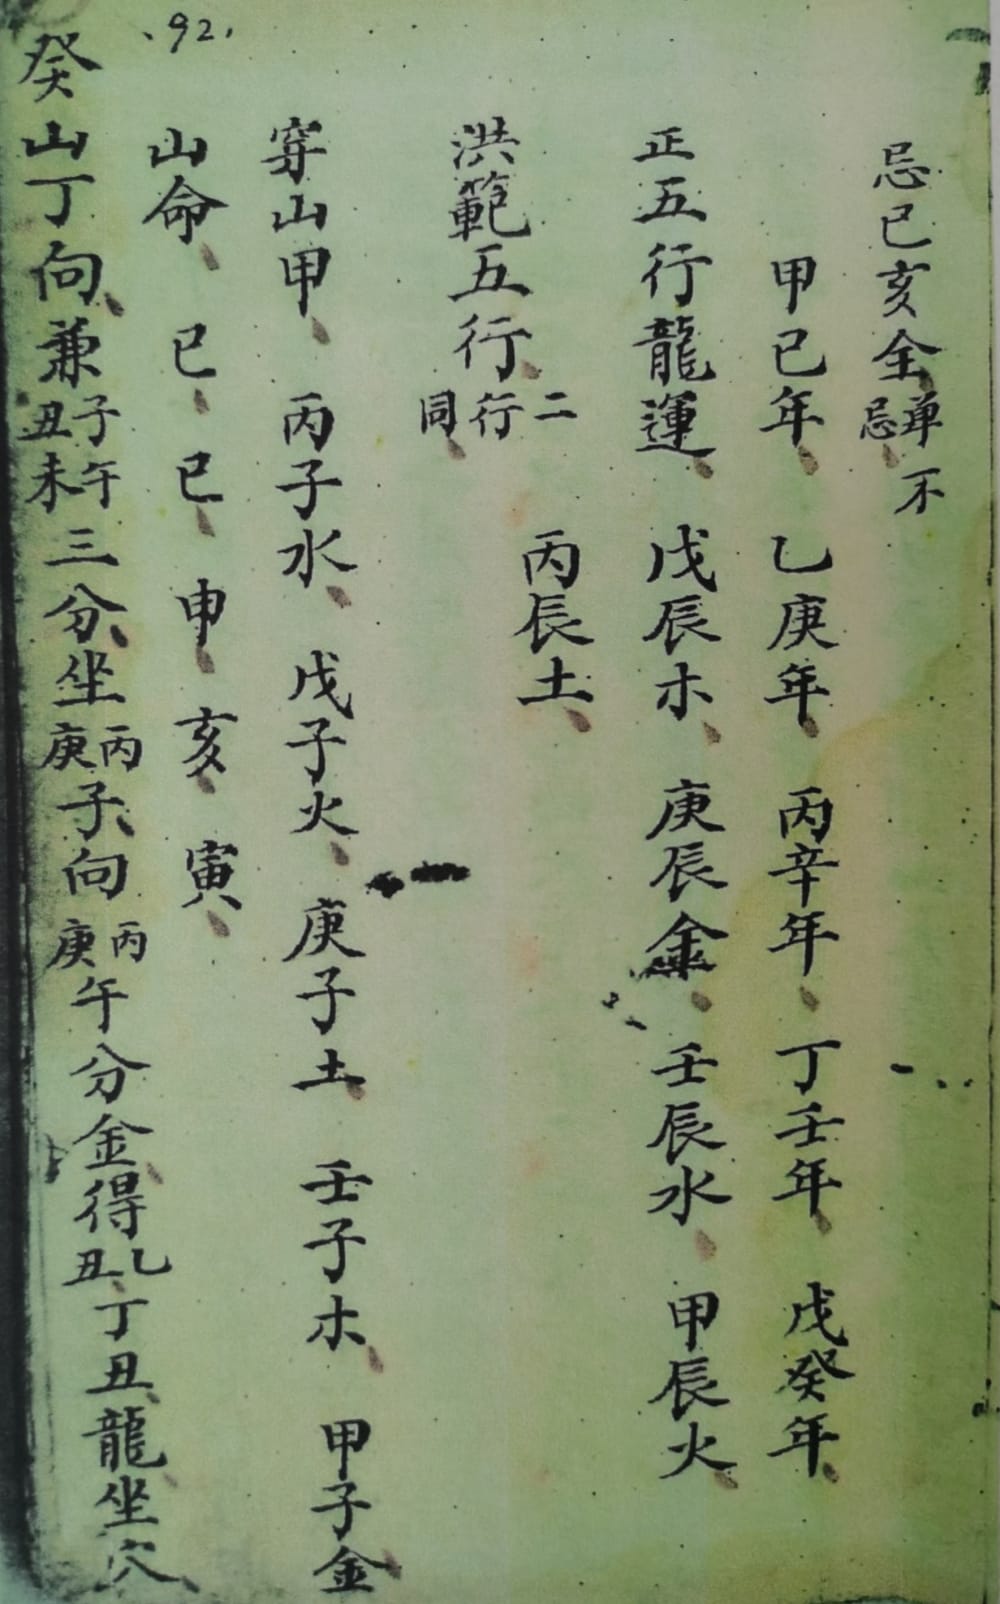 .92.
忌巳亥全单不忌
甲己年、乙庚年、丙辛年、丁壬年、戊癸年、
正五行龍運、戊辰木、庚辰金、壬辰水、甲辰火、
丙辰土、
洪範五行、二行同、
穿山甲、丙子水、戊子火、庚子土、壬子木、甲子金、
山命、巳、巳、申、亥、寅、
癸山丁向、兼子午丑未三分、坐丙庚子、向丙庚午分金、得乙丑、丁丑、龍坐穴、